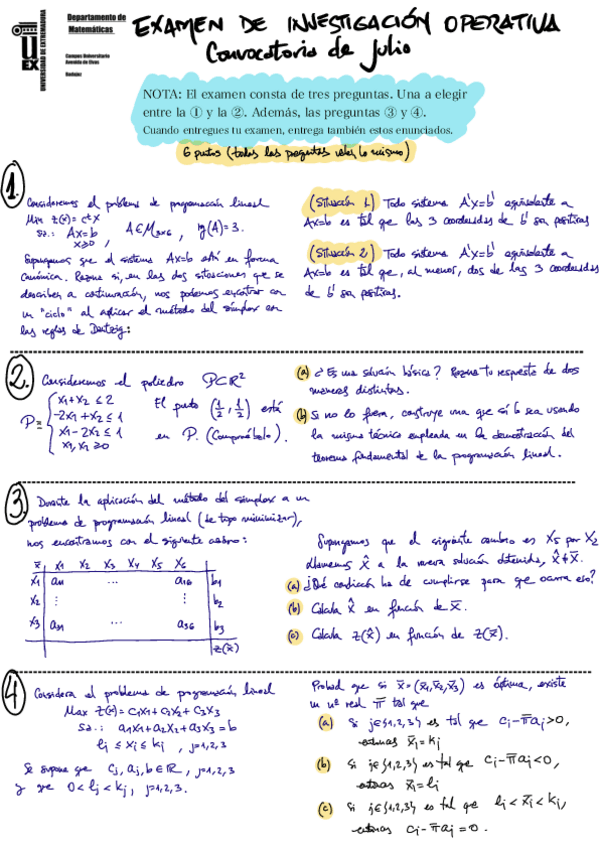 Departamento de
Matemáticas
Campus Universitario
Avenida de Elvas
Badajoz
UNIVERSIDAD DE EXTREMADURA
UEX
EXAMEN DE INVESTIGACIÓN OPERATIVA
Convocatoria de julio
NOTA: El examen consta de tres preguntas. Una a elegir
entre la ① y la ②. Además, las preguntas ③ y ④.
Cuando entregues tu examen, entrega también estos enunciados.
6 puntos (todas las preguntas valen lo mismo)
1.
Consideremos el problema de programación lineal
Min z(x) = cᵗx
s.a.: Ax=b , A∈M₃ₓ₆ , rg(A)=3.
x≥0
Supongamos que el sistema Ax=b está en forma
canónica. Razona si, en las dos situaciones que se
describen a continuación, nos podemos encontrar con
un "ciclo" al aplicar el método del simplex con
las reglas de Dantzig:
(Situación 1) Todo sistema A'x=b' equivalente a
Ax=b es tal que las 3 coordenadas de b' son positivas
(Situación 2) Todo sistema A'x=b' equivalente a
Ax=b es tal que, al menor, dos de las 3 coordenadas
de b' son positivas.
2.
Consideremos el poliedro P⊂R²
P≡ { x₁+x₂ ≤ 2
-2x₁+x₂ ≤ 1
x₁-2x₂ ≤ 1
x₁, x₂ ≥0
El punto (1/2, 1/2) está
en P. (Compruébalo).
(a) ¿Es una solución básica? Razona tu respuesta de dos
maneras distintas.
(b) Si no lo fuera, construye una que sí lo sea usando
la misma técnica empleada en la demostración del
teorema fundamental de la programación lineal.
3.
Durante la aplicación del método del simplex a un
problema de programación lineal (de tipo minimizar),
nos encontramos con el siguiente cuadro:
x̄ x₁ x₂ x₃ x₄ x₅ x₆
x₁ a₁₁ ... a₁₆ b₁
x₂ ⋮ ⋮ b₂
x₃ a₃₁ ... a₃₆ b₃
z(x̄)
Supongamos que el siguiente cambio es x₅ por x₂
Llamemos x̂ a la nueva solución obtenida, x̂≠x̄.
(a) ¿Qué condición ha de cumplirse para que ocurra eso?
(b) Calcula x̂ en función de x̄.
(c) Calcula z(x̂) en función de z(x̄).
4
Considera el problema de programación lineal
Max z(x) = c₁x₁+c₂x₂+c₃x₃
s.a.: a₁x₁+a₂x₂+a₃x₃ = b
lⱼ ≤ xⱼ ≤ kⱼ , j=1,2,3
Se supone que cⱼ, aⱼ, b∈R , j=1,2,3
y que 0<lⱼ<kⱼ, j=1,2,3.
Probad que si x̄=(x̄₁,x̄₂,x̄₃) es óptima, existe
un nº real π̄ tal que
(a) Si j∈{1,2,3} es tal que cⱼ-π̄aⱼ>0,
entonces x̄ⱼ=kⱼ
(b) Si j∈{1,2,3} es tal que cⱼ-π̄aⱼ<0,
entonces x̄ⱼ=lⱼ
(c) Si j∈{1,2,3} es tal que lⱼ<x̄ⱼ<kⱼ,
entonces cⱼ-π̄aⱼ=0.